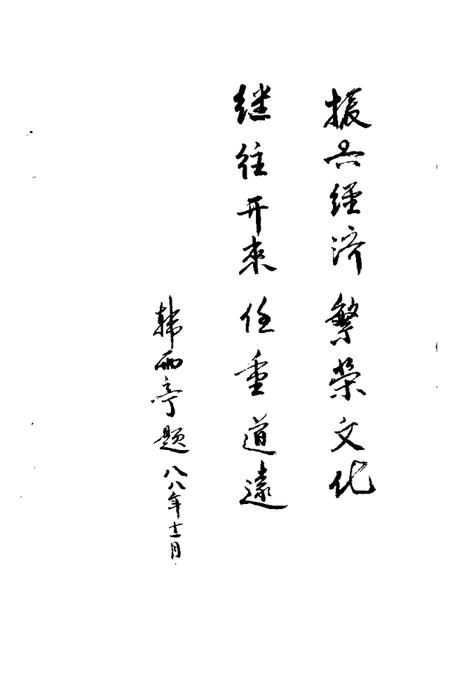 振兴经济 繁荣文化
继往开来 任重道远
韩雨亭题 八八年十二月